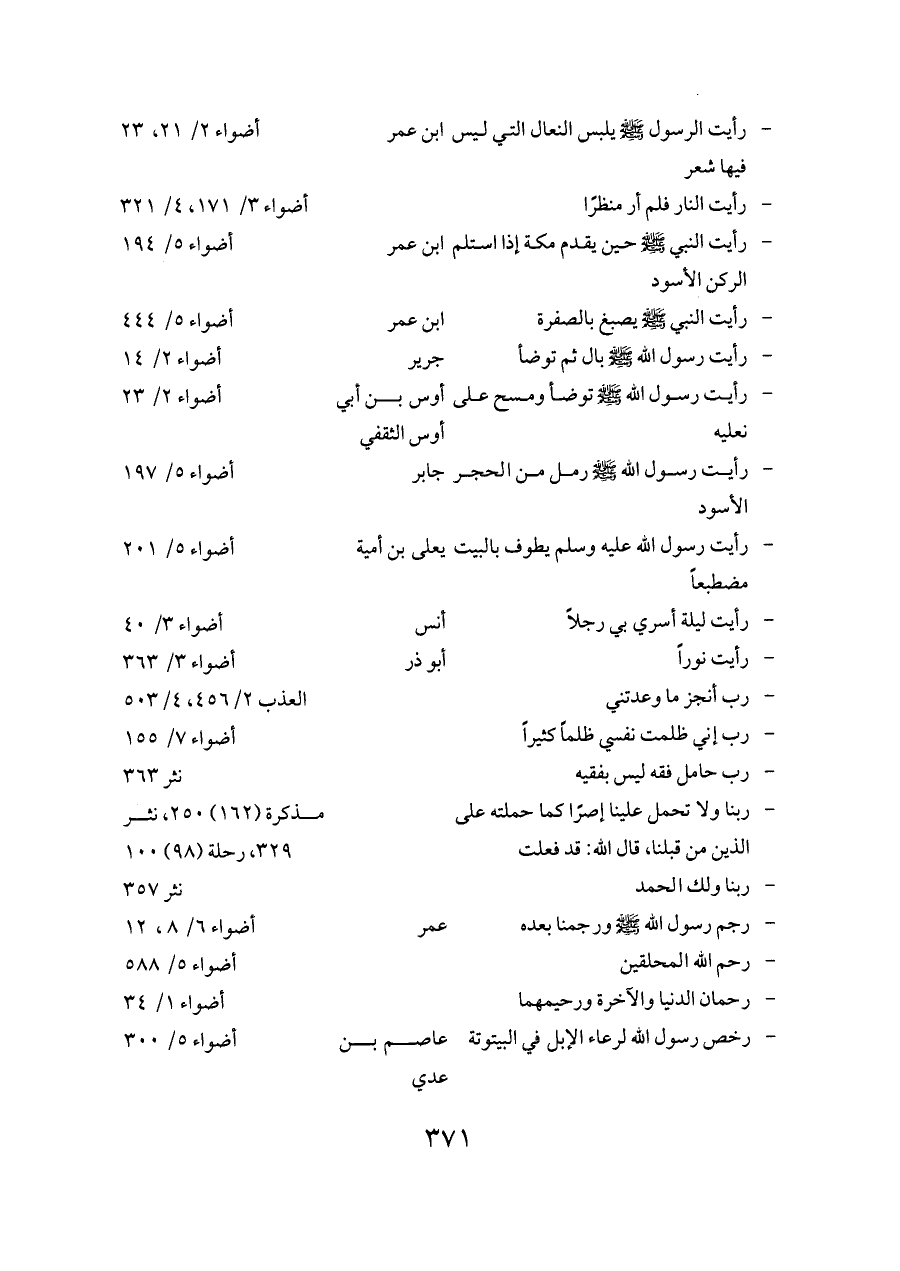 - رأيت الرسول ﷺ يلبس النعال التي ليس ابن عمر أضواء ٢/ ٢١، ٢٣
فيها شعر
- رأيت النار فلم أر منظرًا أضواء ٣/ ١٧١، ٤/ ٣٢١
- رأيت النبي ﷺ حين يقدم مكة إذا استلم ابن عمر أضواء ٥/ ١٩٤
الركن الأسود
- رأيت النبي ﷺ يصبغ بالصفرة ابن عمر أضواء ٥/ ٤٤٤
- رأيت رسول الله ﷺ بال ثم توضأ جرير أضواء ٢/ ١٤
- رأيت رسول الله ﷺ توضأ ومسح على أوس بن أبي أضواء ٢/ ٢٣
نعليه أوس الثقفي
- رأيت رسول الله ﷺ رمل من الحجر جابر أضواء ٥/ ١٩٧
الأسود
- رأيت رسول الله عليه وسلم يطوف بالبيت يعلى بن أمية أضواء ٥/ ٢٠١
مضطبعاً
- رأيت ليلة أسري بي رجلاً أنس أضواء ٣/ ٤٠
- رأيت نوراً أبو ذر أضواء ٣/ ٣٦٣
- رب أنجز ما وعدتني العذب ٢/ ٤٥٦، ٤/ ٥٠٣
- رب إني ظلمت نفسي ظلماً كثيراً أضواء ٧/ ١٥٥
- رب حامل فقه ليس بفقيه نثر ٣٦٣
- ربنا ولا تحمل علينا إصرًا كما حملته على مذكرة (١٦٢) ٢٥٠، نثر
الذين من قبلنا، قال الله: قد فعلت ٣٢٩، رحلة (٩٨) ١٠٠
- ربنا ولك الحمد نثر ٣٥٧
- رجم رسول الله ﷺ ورجمنا بعده عمر أضواء ٦/ ٨، ١٢
- رحم الله المحلقين أضواء ٥/ ٥٨٨
- رحمان الدنيا والآخرة ورحيمهما أضواء ١/ ٣٤
- رخص رسول الله لرعاء الإبل في البيتوتة عاصم بن أضواء ٥/ ٣٠٠
عدي
٣٧١